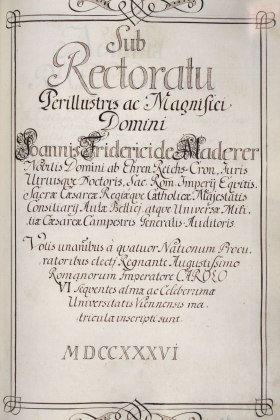 Sub
Rectoratu
Perillustris ac Magnifici
Domini
Joannis Friderici de Maderer
Nobilis Domini ab Ehren-Reichs-Cron, Juris
Utriusque Doctoris, Sac. Rom. Imperÿ Equitis,
Sacræ Cæsareæ Regiæque Catholicæ Majestatis
Consiliarÿ Aulæ Bellici, atque Universæ Mili-
tiæ Cæsareæ Campestris Generalis Auditoris.
Votis unanibus à quatuor Nationum Procu-
ratoribus electi Regnante Augustissimo
Romanorum Imperatore CAROLO
VI Sequentes almæ ac Celeberrimæ
Universitatis Viennensis ma-
tricula inscripti sunt.
MDCCXXXVI